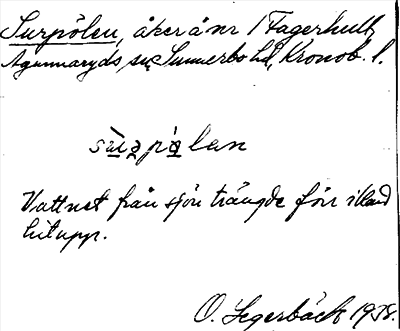 Surpölen, åker å nr 1 Fagerhult,
Agunnaryds sn, Sunnerbo hd, Kronob. l.
Vattnet från sjön trängde förr ibland
hit upp.
O. Segerbäck 1938.